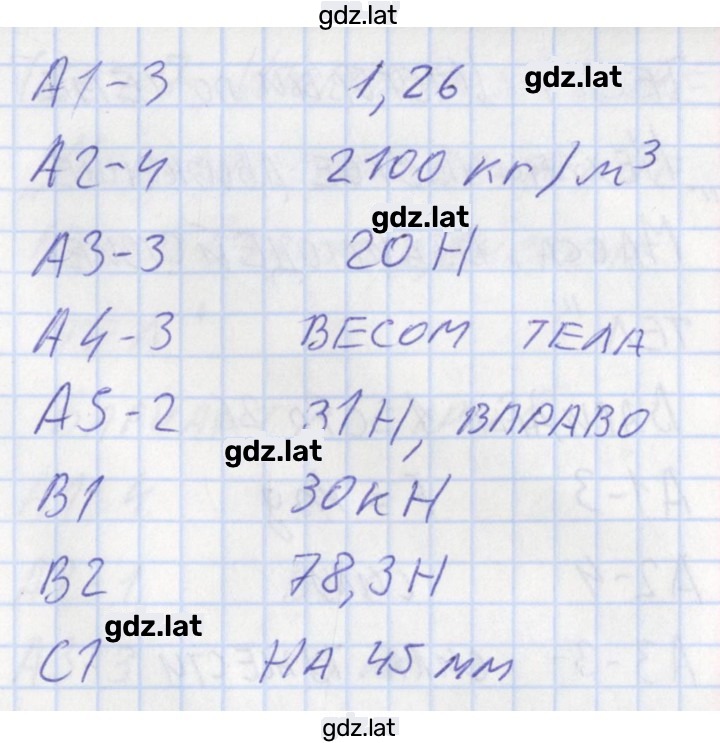 gdz.lat
А1-3 1,26 gdz.lat
А2-4 2100 кг/м³
gdz.lat
А3-3 20 Н
А4-3 ВЕСОМ ТЕЛА
А5-2 31Н, ВПРАВО
gdz.lat
В1 30кН
В2 78,3Н
gdz.lat
С1 НА 45 мм
gdz.lat